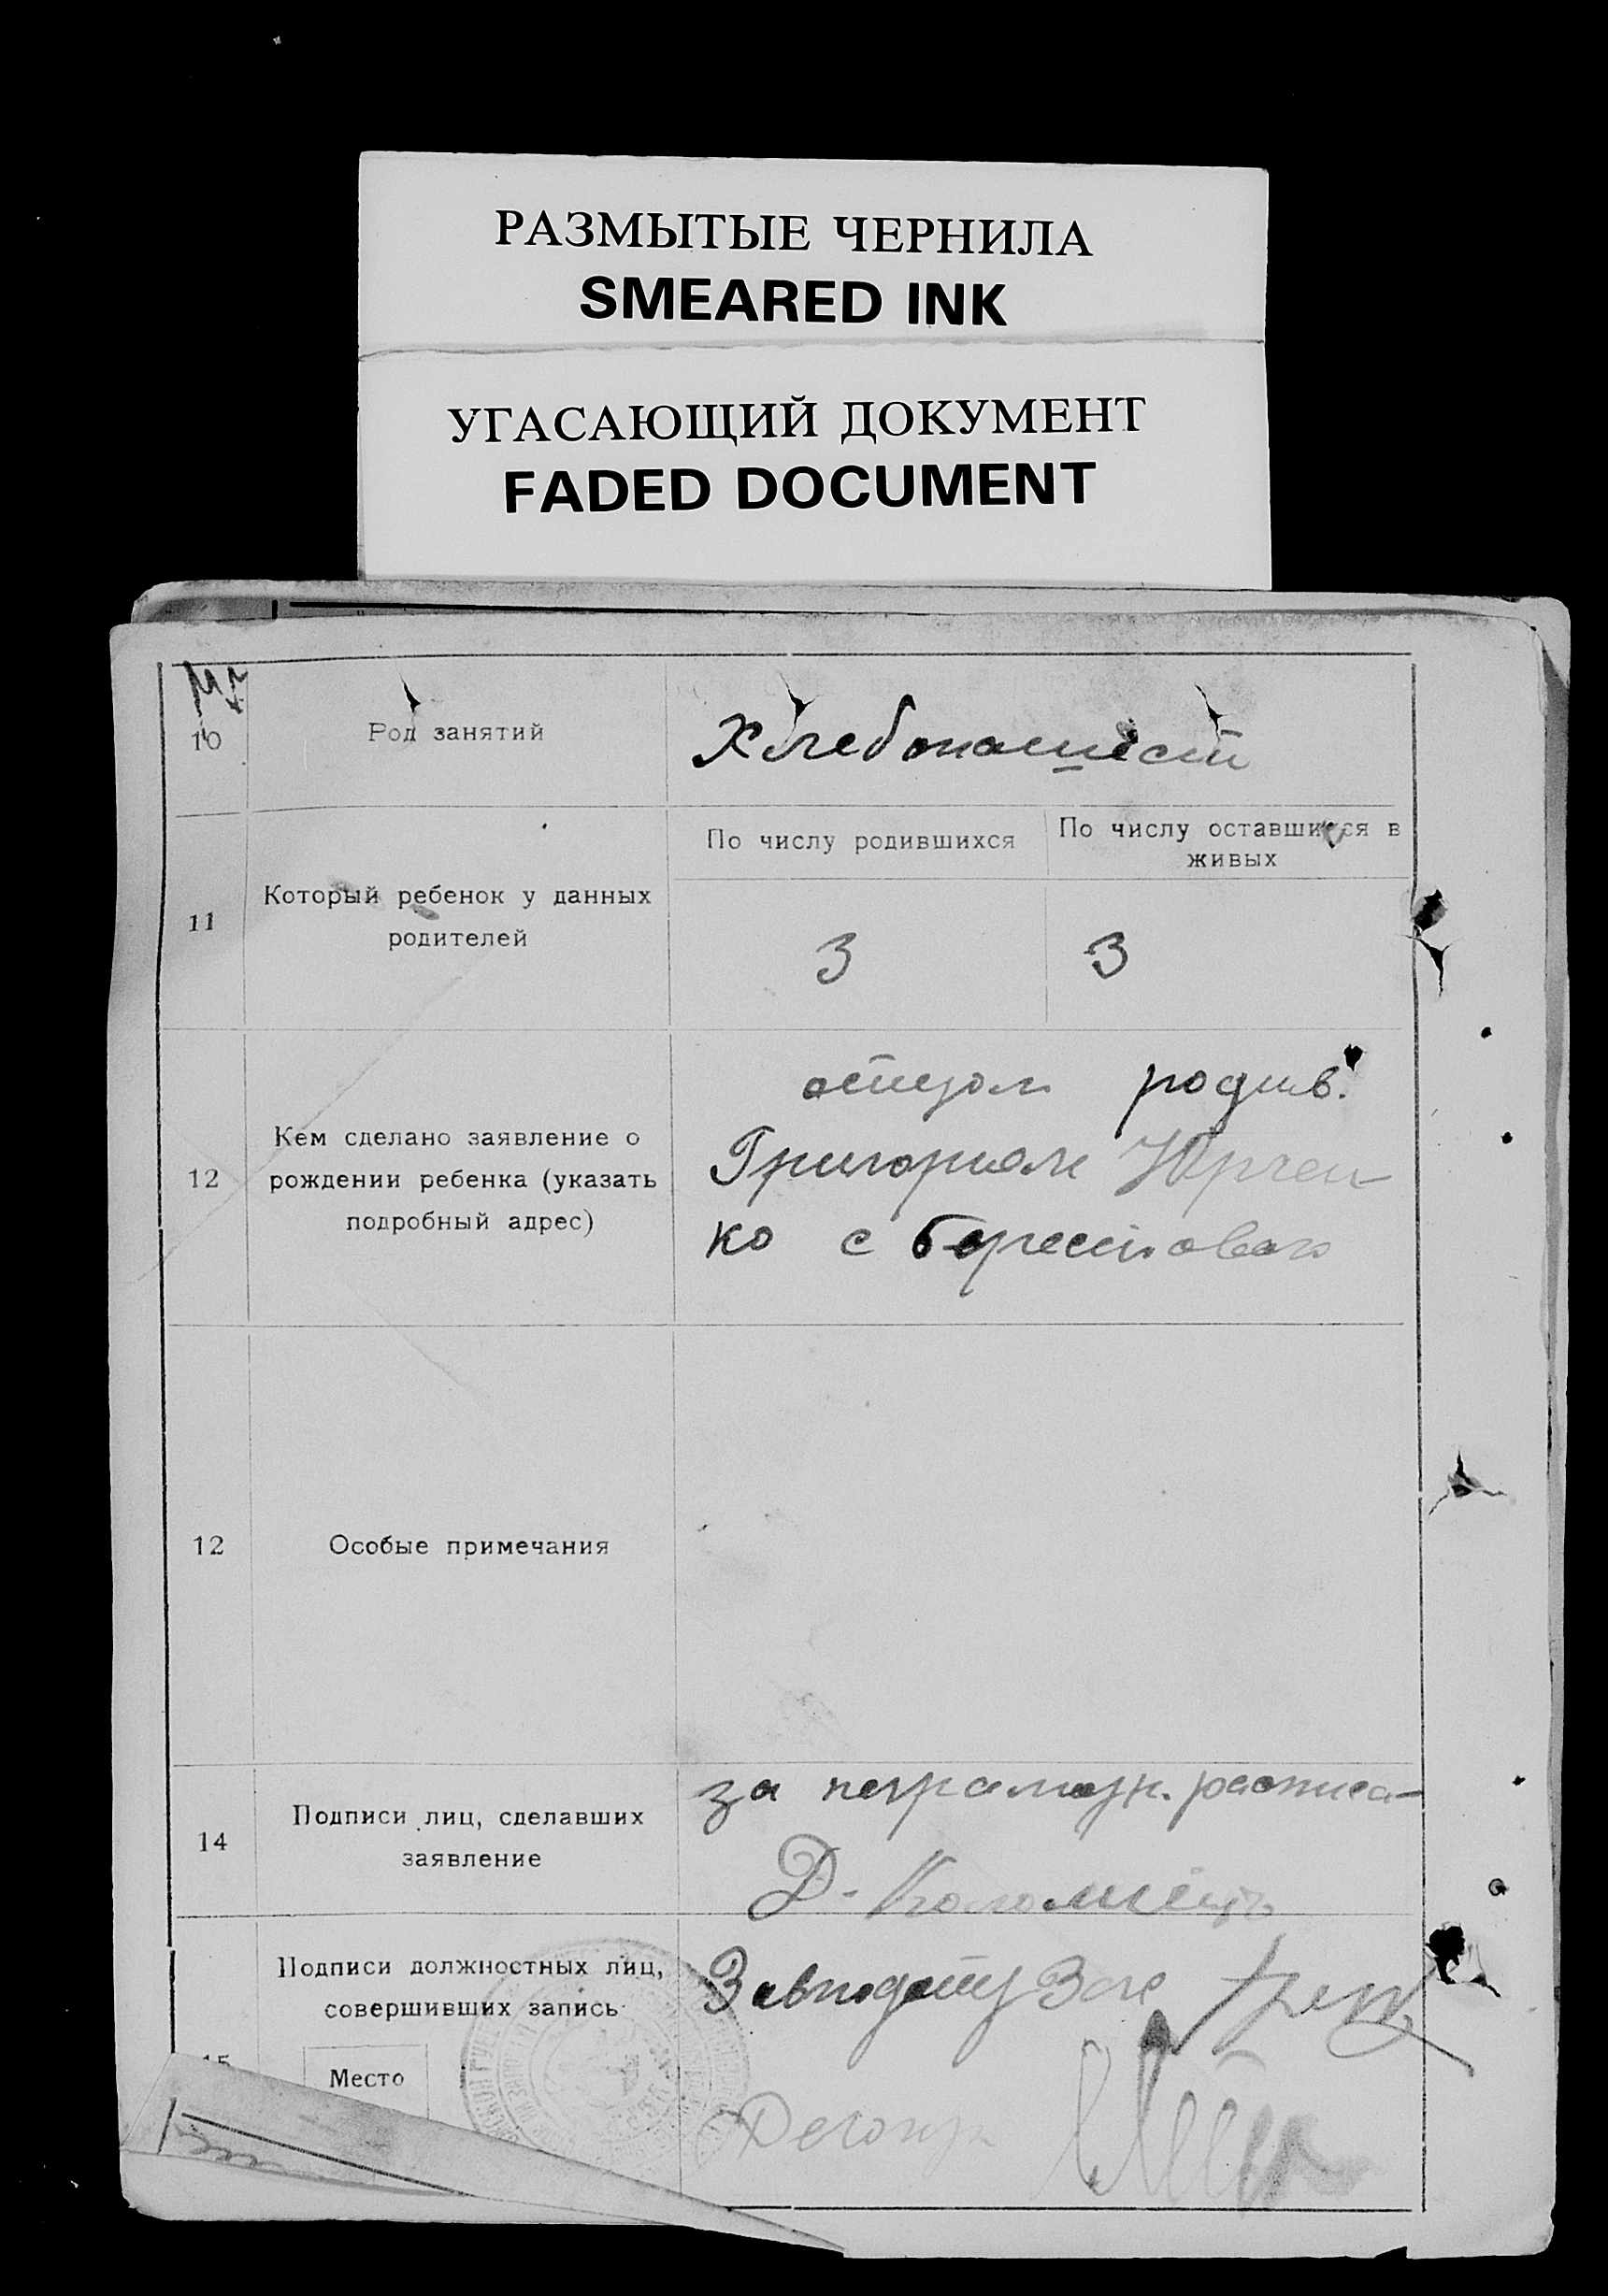 РАЗМЫТЫЕ ЧЕРНИЛА
SMEARED INK
УГАСАЮЩИЙ ДОКУМЕНТ
FADED DOCUMENT
10
Род занятий
Хлебопашест
11
Который ребенок у данных
родителей
По числу родившихся
По числу оставшихся в
живых
3
3
12
Кем сделано заявление о
рождении ребенка (указать
подробный адрес)
отцом родив.
Григорием Юрчен-
ко с Берестового
12
Особые примечания
14
Подписи лиц, сделавших
заявление
за неграмотн. расписа-
Д. Коломиец
Подписи должностных лиц,
совершивших запись
15
Место
Завподотд Заг
Делопр